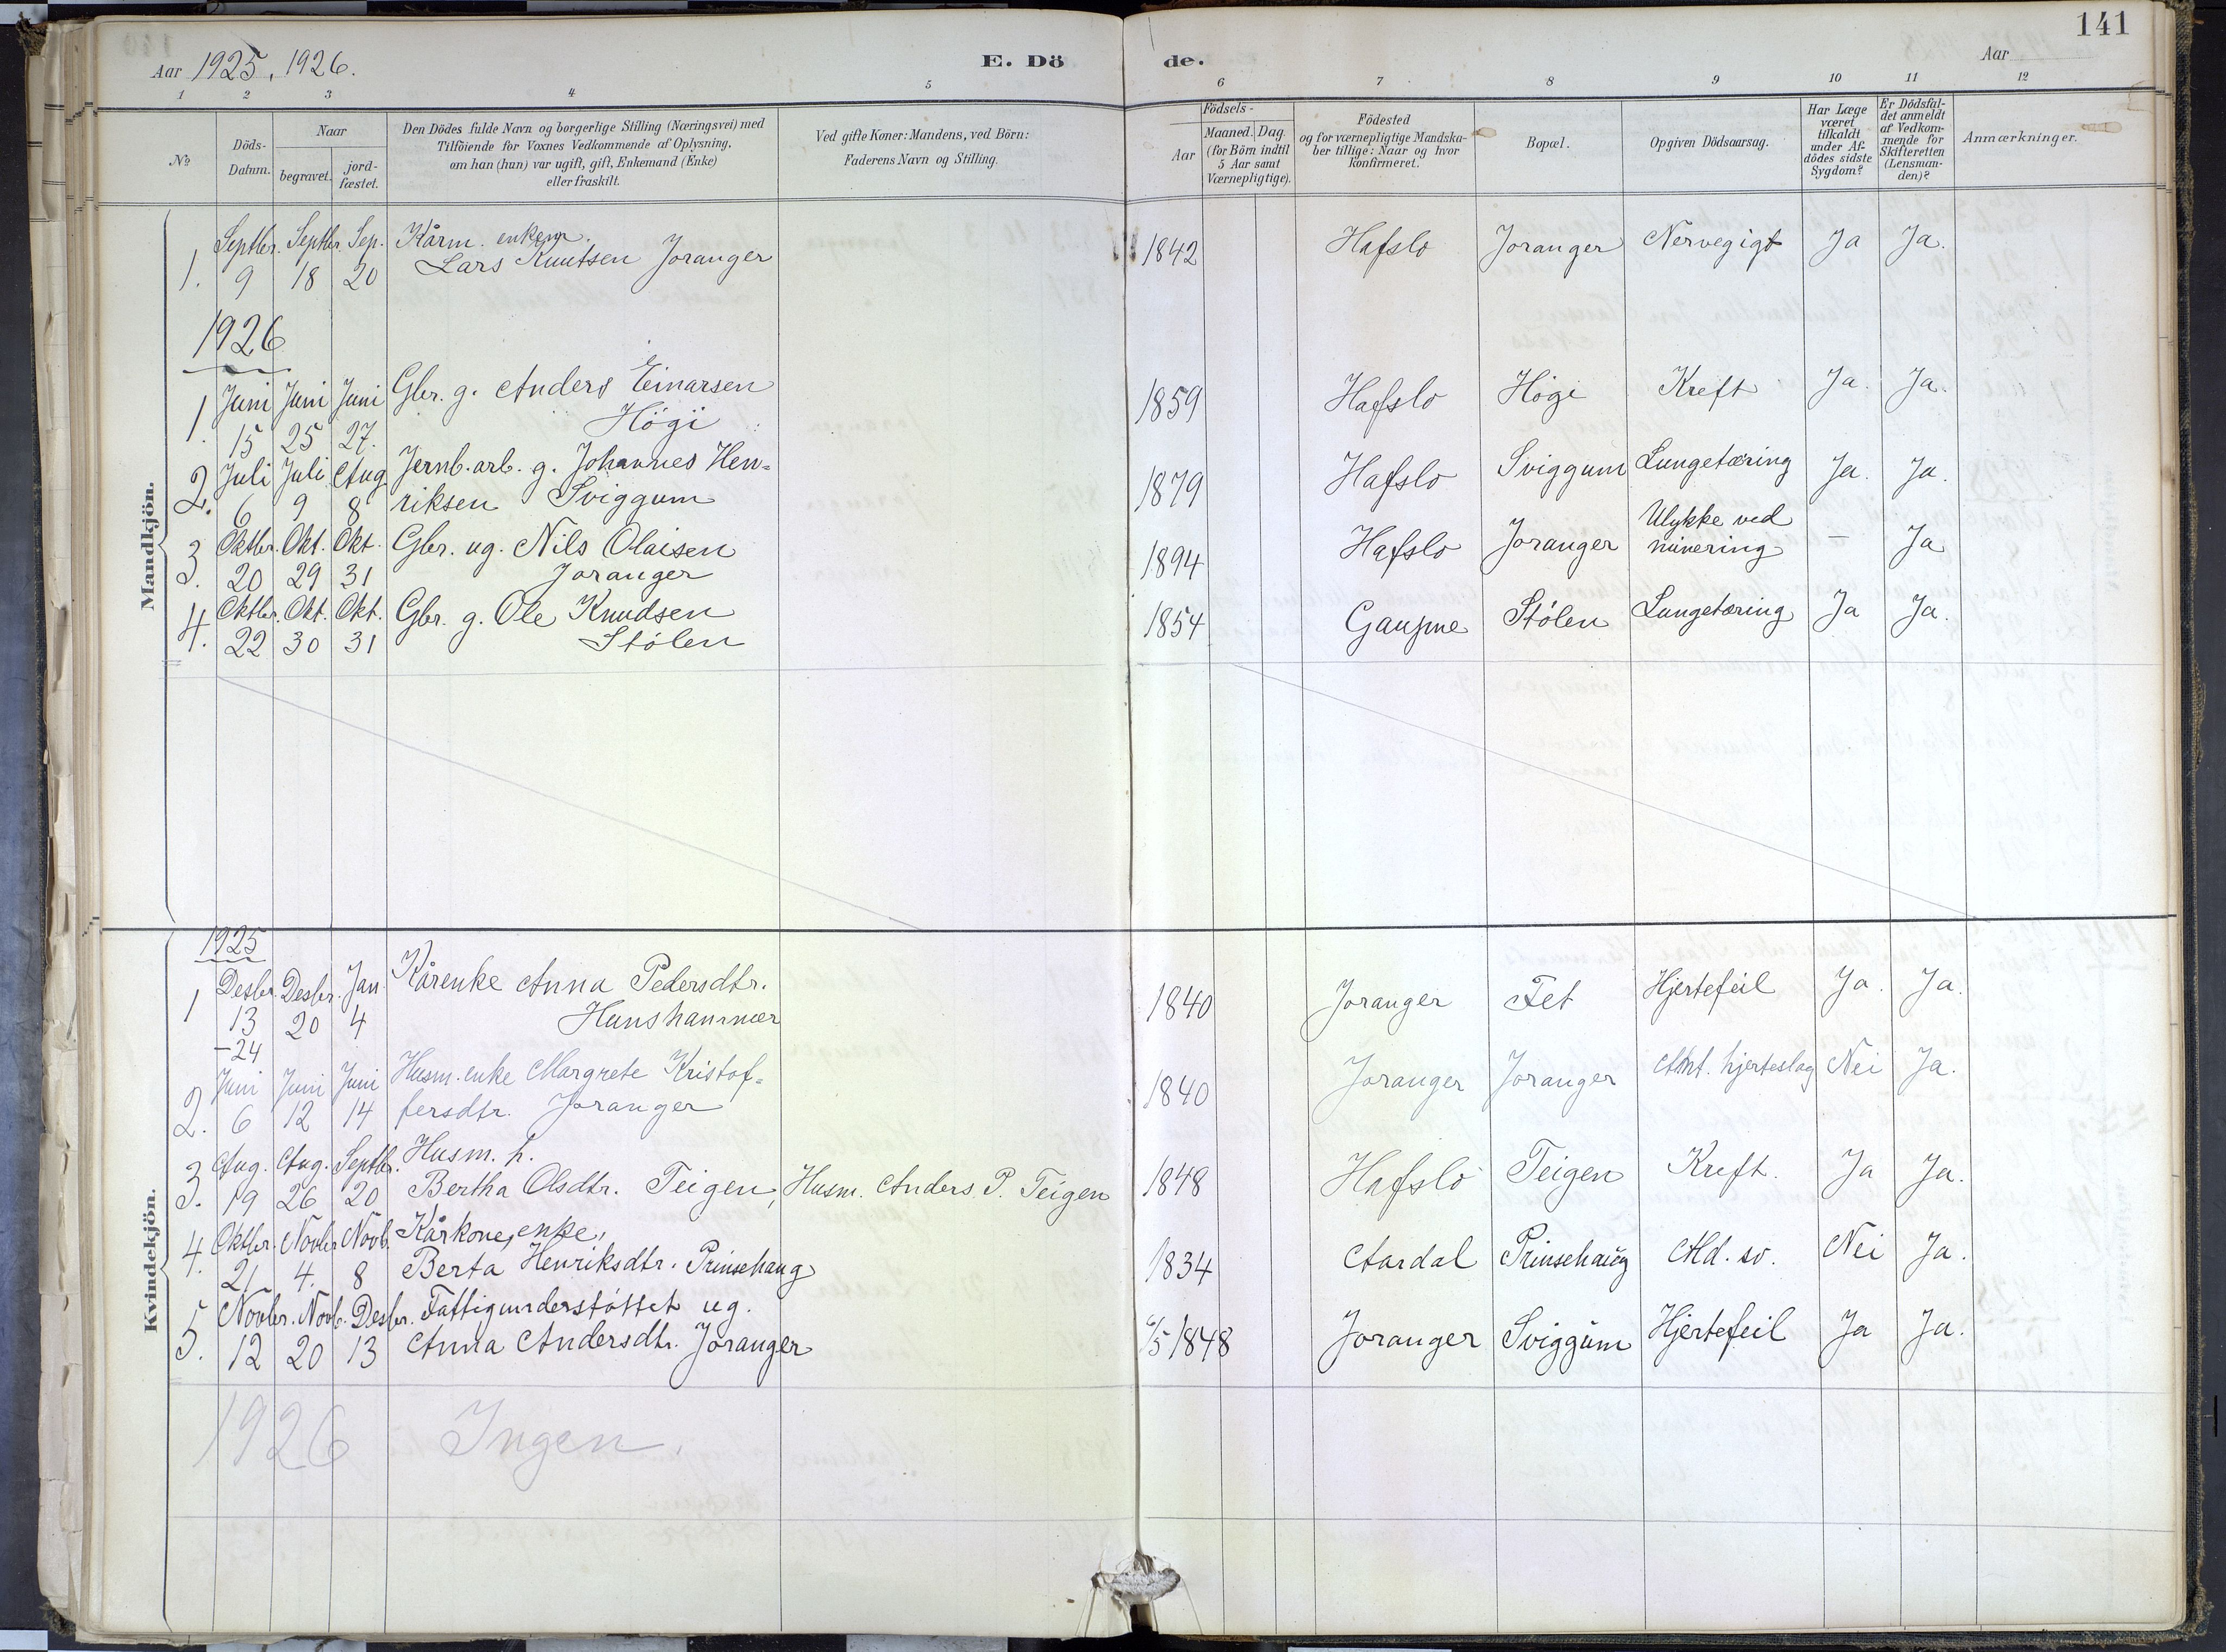 141
Aar 1925, 1926.
E. Dö de.
Aar
1 2 3 4 5 6 7 8 9 10 11 12
No
Döds-
Datum.
Naar
begravet.
jord-
fæstet.
Den Dödes fulde Navn og borgerlige Stilling (Næringsvei) med
Tilföiende for Voxnes Vedkommende af Oplysning,
om han (hun) var ugift, gift, Enkemand (Enke)
eller fraskilt.
Ved gifte Koner: Mandens, ved Börn:
Faderens Navn og Stilling.
Födsels-
Aar
Maaned. Dag.
(for Börn indtil
5 Aar samt
Værnepligtige).
Födested
og for værnepligtige Mandska-
ber tillige: Naar og hvor
konfirmeret.
Bopæl.
Opgiven Dödsaarsag.
Har Læge
været
tilkaldt
under Af-
dödes sidste
Sygdom?
Er Dödsfal-
det anmeldt
af Vedkom-
mende for
Skifteretten
(Lensman-
den)?
Anmærkninger.
Mandkjön.
Septbr. Septbr. Sep. Kårm. enkem.
1. 9 18 20 Lars Knutsen Joranger 1842 Hafslo Joranger Nervegigt Ja Ja.
1926
1. Juni Juni Juni Gbr. g. Anders Einarsen 1859 Hafslo Högi Kreft Ja. Ja.
15 25 27. Högi
2. Juli Juli Aug Jernb. arb. g. Johannes Hen- 1879 Hafslo Sviggum Lungetæring Ja. Ja.
6 9 8 riksen Sviggum
3. Oktbr. Okt. Okt. Gbr. ug. Nils Olaisen 1894 Hafslo Joranger Ulykke ved
minering – Ja
20 29 31 Joranger
4. Oktbr. Okt. Okt. Gbr. g. Ole Knudsen 1854 Gaupne Stölen Lungetæring Ja Ja.
22 30 31 Stölen
Kvindekjön.
1925
1 Desbr. Desbr. Jan. Kårenke Anna Pedersdtr. 1840 Joranger Fet Hjertefeil Ja. Ja.
13 20 4 Hunshammer
–24
2. Juni Juni Juni Husm. enke Margrete Kristof- 1840 Joranger Joranger Ant. hjerteslag Nei Ja.
6 12 14 fersdtr. Joranger
3. Aug. Aug. Septbr. Husm. h.
19 26 20 Bertha Olsdtr. Teigen, Husm. Anders P. Teigen 1848 Hafslo Teigen Kreft. Ja Ja.
4. Oktbr. Novbr. Novb. Kårkone, enke,
21 4. 8 Berta Henriksdtr. Prinsehaug 1834 Aardal Prinsehaug Ald. sv. Nei Ja.
5. Novbr. Novb. Desbr. Fattigunderstöttet ug.
12 20 13 Anna Andersdtr. Joranger 6/5 1848 Joranger Sviggum Hjertefeil Ja Ja.
1926 Ingen.